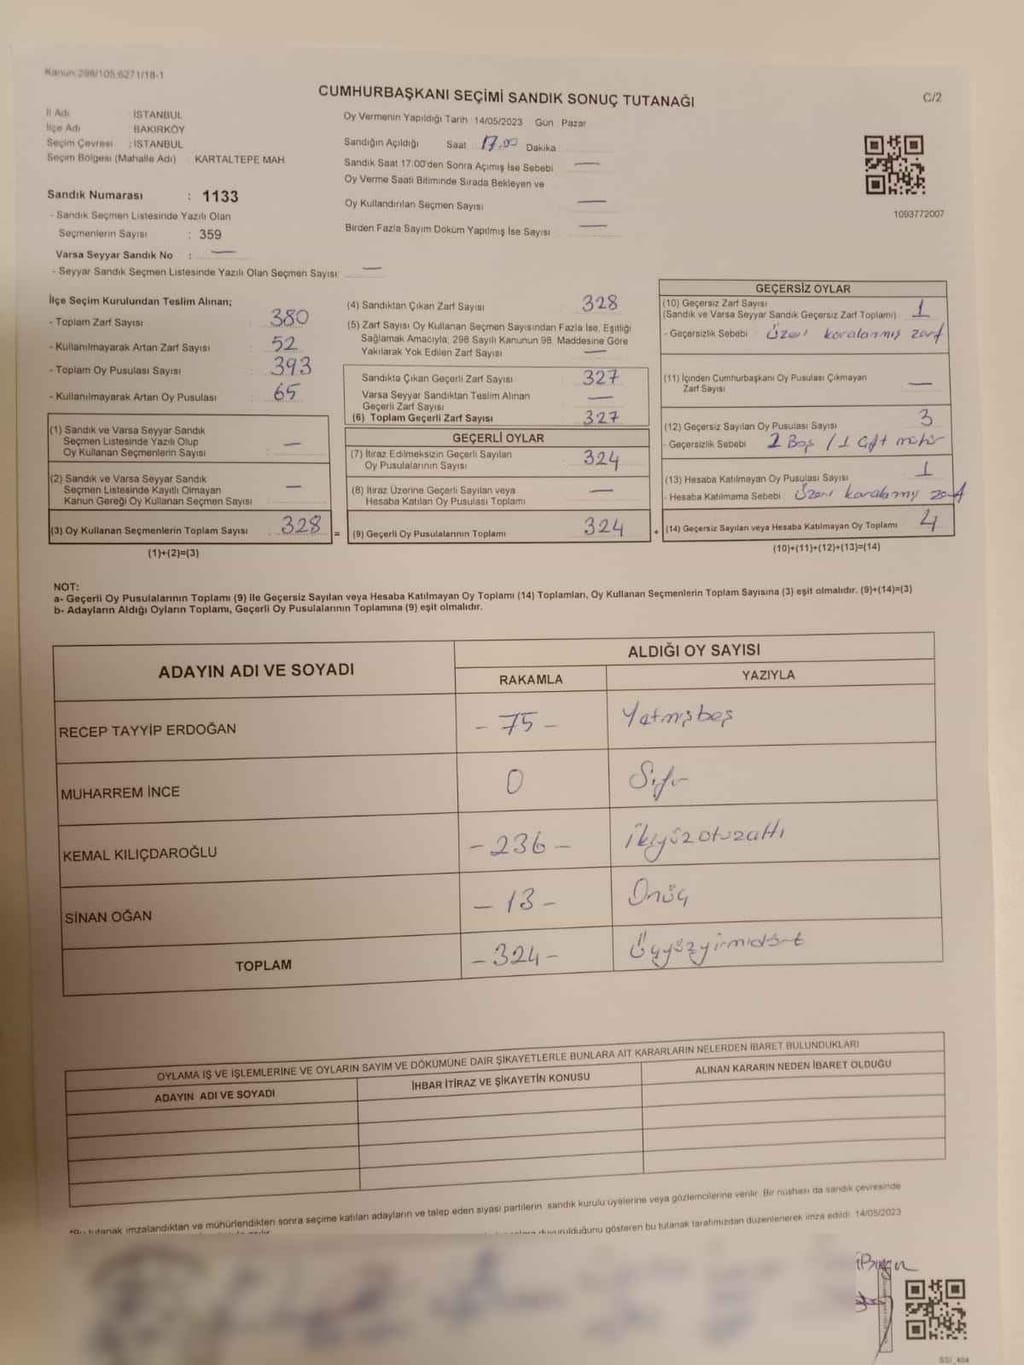 Kanun 298/105,6271/18-1
CUMHURBAŞKANI SEÇİMİ SANDIK SONUÇ TUTANAĞI
C/2
İl Adı : İSTANBUL
İlçe Adı : BAKIRKÖY
Seçim Çevresi : İSTANBUL
Seçim Bölgesi (Mahalle Adı) : KARTALTEPE MAH
Sandık Numarası : 1133
- Sandık Seçmen Listesinde Yazılı Olan
Seçmenlerin Sayısı : 359
Varsa Seyyar Sandık No : —
- Seyyar Sandık Seçmen Listesinde Yazılı Olan Seçmen Sayısı: —
Oy Vermenin Yapıldığı Tarih 14/05/2023 Gün Pazar
Sandığın Açıldığı Saat 17.00 Dakika
Sandık Saat 17:00'den Sonra Açılmış İse Sebebi —
Oy Verme Saati Bitiminde Sırada Bekleyen ve
Oy Kullandırılan Seçmen Sayısı —
Birden Fazla Sayım Döküm Yapılmış İse Sayısı —
1093772007
İlçe Seçim Kurulundan Teslim Alınan;
- Toplam Zarf Sayısı : 380
- Kullanılmayarak Artan Zarf Sayısı : 52
- Toplam Oy Pusulası Sayısı : 393
- Kullanılmayarak Artan Oy Pusulası : 65
(1) Sandık ve Varsa Seyyar Sandık
Seçmen Listesinde Yazılı Olup
Oy Kullanan Seçmenlerin Sayısı —
(2) Sandık ve Varsa Seyyar Sandık
Seçmen Listesinde Kayıtlı Olmayan
Kanun Gereği Oy Kullanan Seçmen Sayısı —
(3) Oy Kullanan Seçmenlerin Toplam Sayısı 328 =
(1)+(2)=(3)
(4) Sandıktan Çıkan Zarf Sayısı 328
(5) Zarf Sayısı Oy Kullanan Seçmen Sayısından Fazla İse, Eşitliği
Sağlamak Amacıyla, 298 Sayılı Kanunun 98. Maddesine Göre
Yakılarak Yok Edilen Zarf Sayısı —
Sandıkta Çıkan Geçerli Zarf Sayısı 327
Varsa Seyyar Sandıktan Teslim Alınan
Geçerli Zarf Sayısı —
(6) Toplam Geçerli Zarf Sayısı 327
GEÇERLİ OYLAR
(7) İtiraz Edilmeksizin Geçerli Sayılan
Oy Pusulalarının Sayısı 324
(8) İtiraz Üzerine Geçerli Sayılan veya
Hesaba Katılan Oy Pusulası Toplamı —
(9) Geçerli Oy Pusulalarının Toplamı 324 +
GEÇERSİZ OYLAR
(10) Geçersiz Zarf Sayısı
(Sandık ve Varsa Seyyar Sandık Geçersiz Zarf Toplamı) 1
- Geçersizlik Sebebi Üzeri karalanmış zarf
(11) İçinden Cumhurbaşkanı Oy Pusulası Çıkmayan
Zarf Sayısı —
(12) Geçersiz Sayılan Oy Pusulası Sayısı 3
- Geçersizlik Sebebi 2 Boş / 1 Çift mühür
(13) Hesaba Katılmayan Oy Pusulası Sayısı 1
- Hesaba Katılmama Sebebi Üzeri karalanmış zarf
(14) Geçersiz Sayılan veya Hesaba Katılmayan Oy Toplamı 4
(10)+(11)+(12)+(13)=(14)
NOT:
a- Geçerli Oy Pusulalarının Toplamı (9) ile Geçersiz Sayılan veya Hesaba Katılmayan Oy Toplamı (14) Toplamları, Oy Kullanan Seçmenlerin Toplam Sayısına (3) eşit olmalıdır. (9)+(14)=(3)
b- Adayların Aldığı Oyların Toplamı, Geçerli Oy Pusulalarının Toplamına (9) eşit olmalıdır.
ADAYIN ADI VE SOYADI
ALDIĞI OY SAYISI
RAKAMLA YAZIYLA
RECEP TAYYİP ERDOĞAN - 75 - Yetmişbeş
MUHARREM İNCE 0 Sıfır
KEMAL KILIÇDAROĞLU - 236 - İkiyüzotuzaltı
SİNAN OĞAN - 13 - Onüç
TOPLAM - 324 - Üçyüzyirmidört
OYLAMA İŞ VE İŞLEMLERİNE VE OYLARIN SAYIM VE DÖKÜMÜNE DAİR ŞİKAYETLERLE BUNLARA AİT KARARLARIN NELERDEN İBARET BULUNDUKLARI
ADAYIN ADI VE SOYADI İHBAR İTİRAZ VE ŞİKAYETİN KONUSU ALINAN KARARIN NEDEN İBARET OLDUĞU
*Bu tutanak imzalandıktan ve mühürlendikten sonra seçime katılan adayların ve talep eden siyasi partilerin sandık kurulu üyelerine veya gözlemcilerine verilir. Bir nüshası da sandık çevresinde
duyurulduğunu gösteren bu tutanak tarafımızdan düzenlenerek imza edildi. 14/05/2023